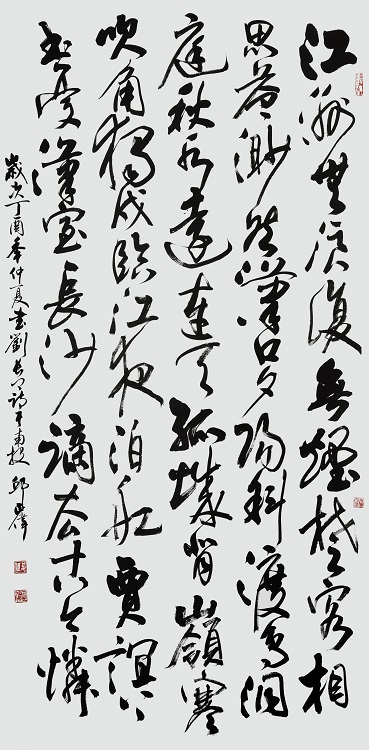 江洲無浪復無煙楚客相
思益渺然漢口夕陽斜渡鳥洞
庭秋水遠連天孤城背嶺寒
吹角獨戍臨江夜泊船賈誼上
書憂漢室長沙謫去古今憐
歲次丁酉年仲夏書劉長卿詩於南投 邱